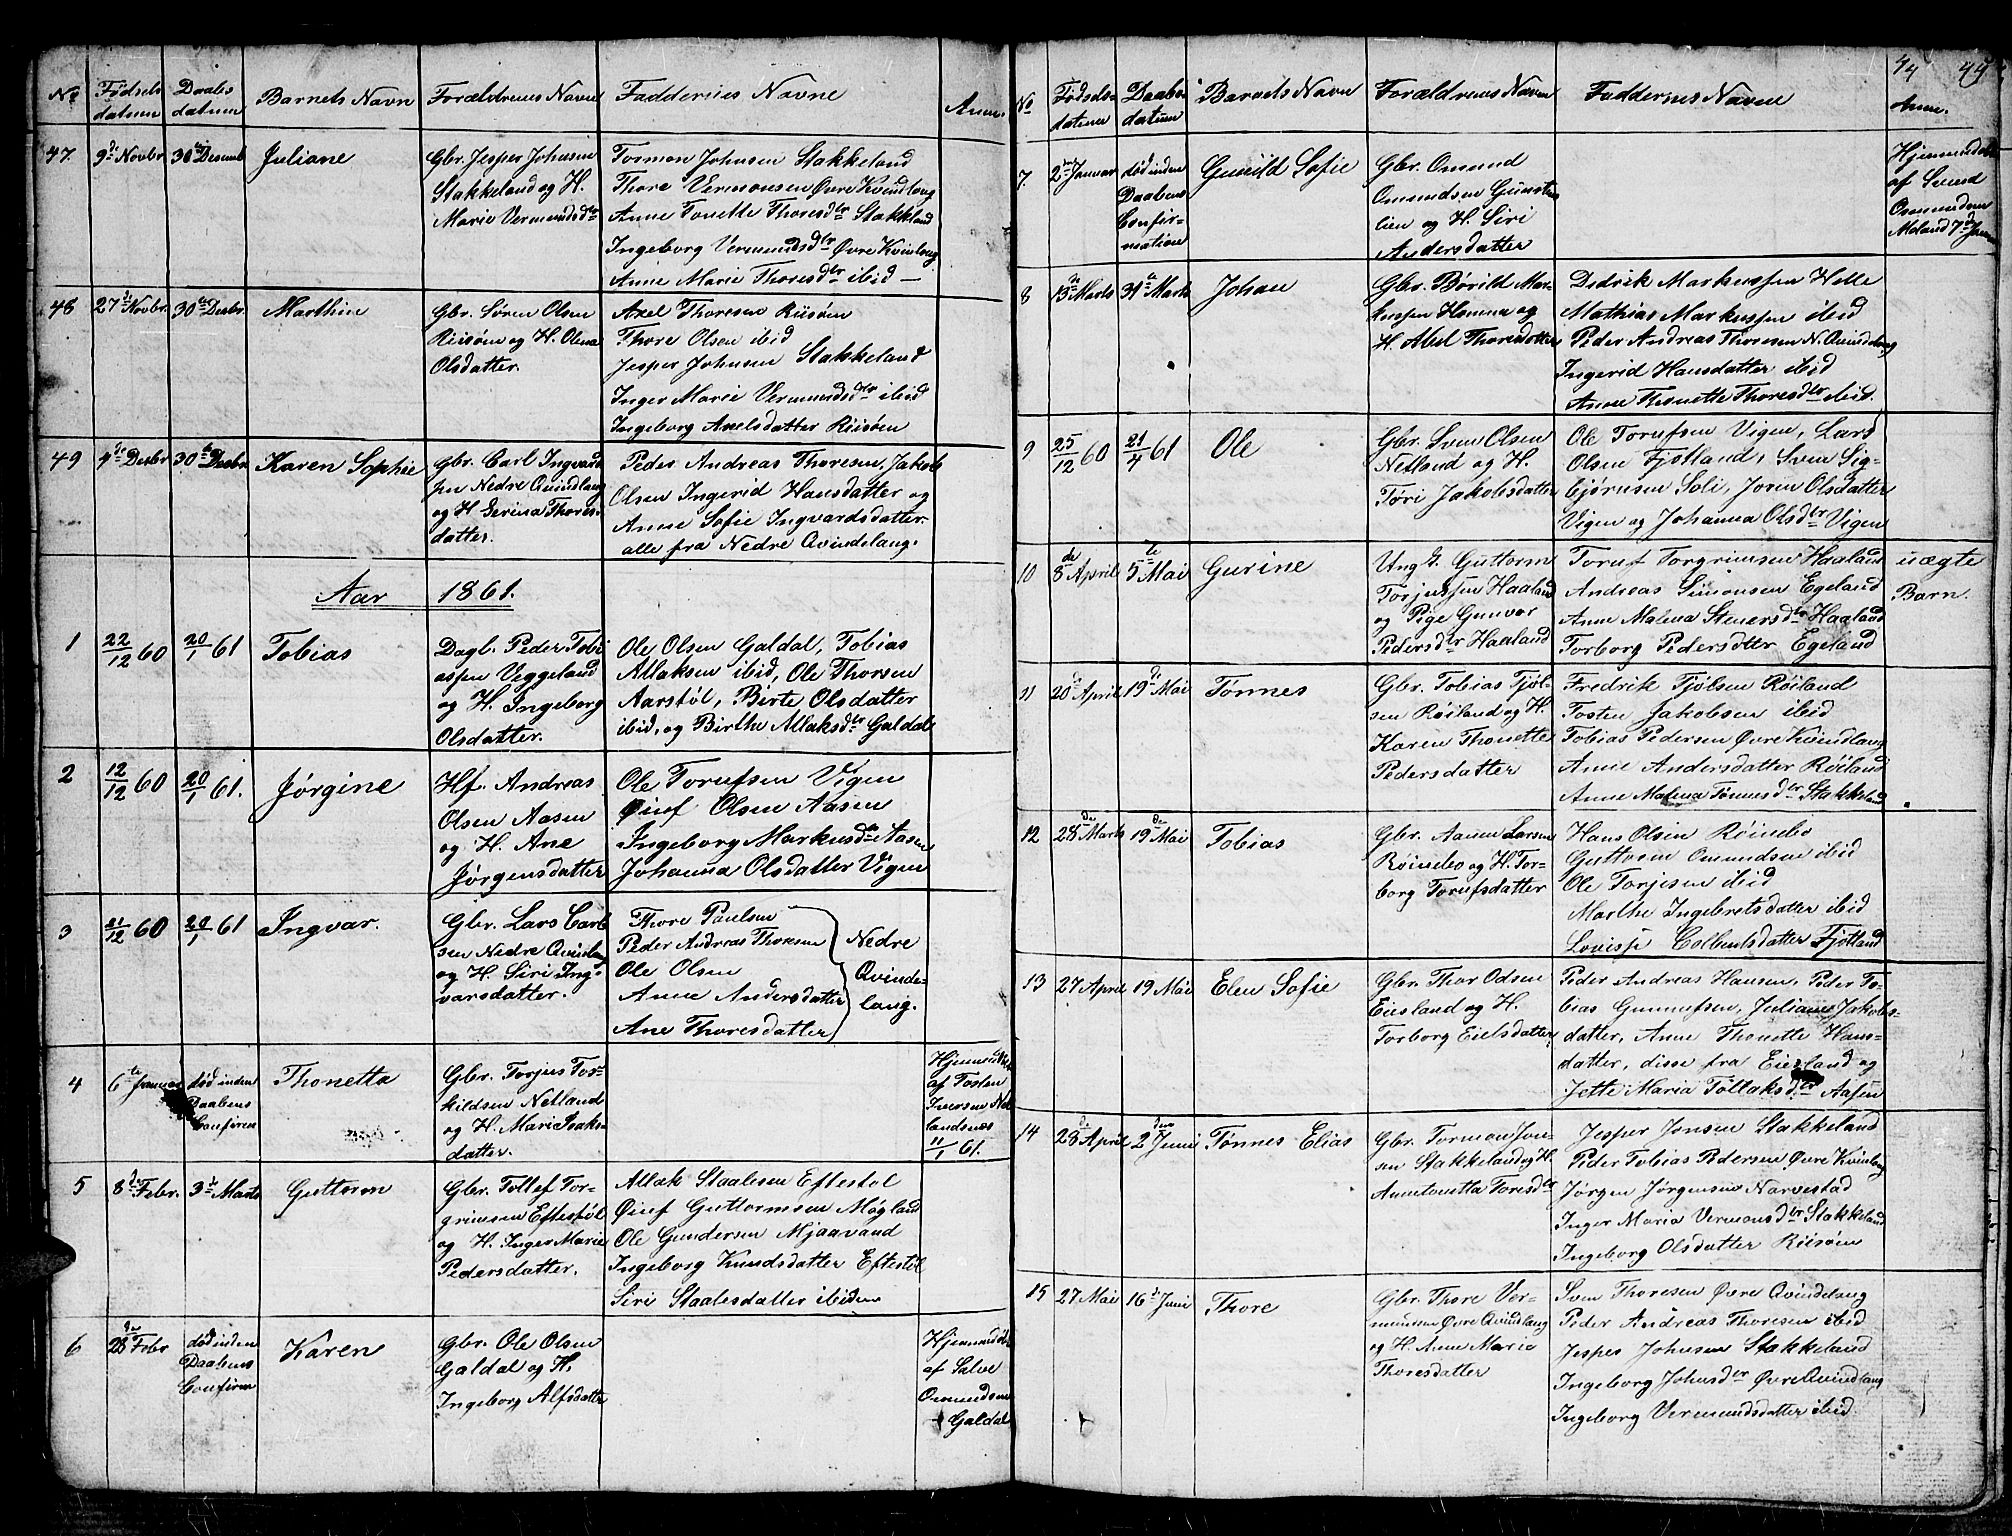 No Fødsels datum Daabs datum Barnets Navn Forældrenes Navne Faddernes Navne Anm.
47. 9de Novbr 30te Desemb Juliane
Gbr. Jesper Johnsen
Stakkeland og H.
Marie Vermundsdtr
Tormon Johnsen Stakkeland
Thore Vermonsen Øvre Kvindlong
Anne Tonette Thoresdtr Stakkland
Ingeborg Vermundsdtr Øvre Kvinlong
Anne Marie Thoresdtr ibid —
48 27de Novbr. 30te Desbr. Marthin
Gbr. Søren Olsen
Riisøen og H. Olena
Olsdatter.
Axel Thoresen Riisøen
Thore Olsen ibid
Jesper Johnsen Stakkeland
Inger Marie Vermundsdtr ibid
Ingeborg Axelsdatter Riisøen
49 4de Desbr 30te Desbr Karen Sophie
Gbr. Carl Ingvard
sen Nedre Qvindlang
og H Serina Thores-
datter.
Peder Andreas Thoresen, Jakob
Olsen Ingerid Hansdatter og
Anne Sofie Ingvardsdatter.
alle fra Nedre Qvindelang.
Aar 1861.
1 22/12 60 20/1 61 Tobias
Dagl. Peder Tobi
assen Veggeland
og H. Ingeborg
Olsdatter.
Ole Olsen Galdal, Tobias
Allaksen ibid, Ole Thorsen
Aarstøl, Birte Olsdatter
ibid, og Birthe Allaksdtr Galdal
2 12/12 60 20/1 61. Jørgine
Hf. Andreas
Olsen Aasen
og H. Ane
Jørgensdatter
Ole Torufsen Vigen
Øiuf Olsen Aasen
Ingeborg Markusdtr Aasen
Johanna Olsdatter Vigen
3 21/12 60 20/1 61 Ingvar.
Gbr. Lars Carl
sen Nedre Qvinlang
og H. Siri Ing-
varsdatter.
Thore Paulsen
Peder Andreas Thoresen
Ole Olsen
Anne Andersdatter
Ane Thoresdatter
Nedre
Qvinde-
lang.
4 6te Januar død inden
Daabens
Confirm
Thonetta
Gbr. Torjus Tor-
kildsen Netland
og H. Mari Isaks-
datter.
Hjemmedøbt
af Tosten
Iversen Net
landsnes
11/1 61.
5 8de Febr. 3de Marts Guttorm
Gbr. Tollef Tor-
grimsen Eftestøl
og H. Inger Marie
Pedersdatter.
Allak Staalesen Eftestøl
Øiuf Guttormsen Møgland
Ole Gundersen Mjaavand
Ingeborg Knudsdatter Eftestøl
Siri Staalesdatter ibidem
6 28de Febr død inden
Daabens
Confirm
Karen
Gbr. Ole Olsen
Galdal og H.
Ingeborg Alfsdatter
Hjemmedøbt
af Salve
Omundsen
Galdal
44 44
No Fødsels- datum Daabs- datum Barnets Navn Forældrenes Navne Faddernes Navne Anm.
7. 2den Januar død inden
Daabens
Confir-
mation
Gunild Sofie
Gbr. Omund
Omundsen Gunsten
lien og H. Siri
Andersdatter
Hjemmedøbt
af Svend
Osmundsen
Meland 7de Januar
8 13de Marts 31te Marts Johan
Gbr. Børild Mar-
kussen Homma og
H. Abel Thoresdatter
Dedrik Markussen Helle
Mathias Markussen ibid
Peder Andreas Thoresen N. Qvindelang
Ingerid Hansdatter ibid
Anne Thonette Thoresdtr ibid.
9 25/12 60 21/4 61 Ole
Gbr. Sven Olsen
Netland og H.
Tøri Jakobsdatter
Ole Torufsen Vigen, Lars
Olsen Fjotland, Sven Sig-
bjørnsen Soli, Joren Olsdatter
Vigen og Johanna Olsdtr Vigen
10 8de April 5te Mai Gurine
Ungk. Guttorm
Torjussen Haaland
og Pige Gunvor
Pedersdtr Haaland
Toruf Torgrimsen Haaland
Andreas Simonsen Egeland
Anne Malena Stenersdtr Haaland
Torborg Pedersdtter Egeland
uægte
Barn.
11 20de April 19de Mai Tønnes
Gbr. Tobias Tjøl-
sen Røiland og H.
Karen Thonette
Pedersdatter
Fredrik Tjølsen Røiland
Tosten Jakobsen ibid
Tobias Pedersen Øvre Kvindlang
Anne Andersdatter Røiland
Anne Malena Tønnesdtr Stakkeland
12 28de Marts 19de Mai Tobias
Gbr. Aanen Larsen
Røinebo og H. Tor-
borg Torufsdatter
Hans Olsen Røinebo
Guttorm Omundsen ibid
Ole Torjesen ibid
Marthe Ingebretsdatter ibid
Lovisse Colbentsdatter Fjotland
13 27 April 19 Mai Elen Sofie
Gbr. Thor Odsen
Eiesland og H.
Torborg Eielsdatter.
Peder Andreas Hansen, Peder To-
bias Gunnufsen, Juliane Jakobs-
datter, Anne Thonette Hans-
datter, disse fra Eiesland og
Jette Maria Tollaksdtr Aasen
14 28de April 2den Juni Tønnes Elias
Gbr. Tormon Jon-
sen Stakkeland og H.
Annetonetta Toresdtr
Jesper Jonsen Stakkeland
Peder Tobias Pedersen Øvre Kvinlog
Jørgen Jørgensen Narvestad
Inger Maria Vermonsdtr Stakkeland
Ingeborg Olsdatter Riisøen
15 27 Mai 16de Juni Thore
Gbr. Thore Ver-
munsen Øvre Qvindlang
og H. Anne Maria
Thoresdatter
Sven Thoresen Øvre Qvindelang
Peder Andreas Thoresen ibid
Jesper Johnsen Stakkeland
Ingeborg Johnsdtr Øvre Qvindlang
Ingeborg Vermundsdatter ibid.